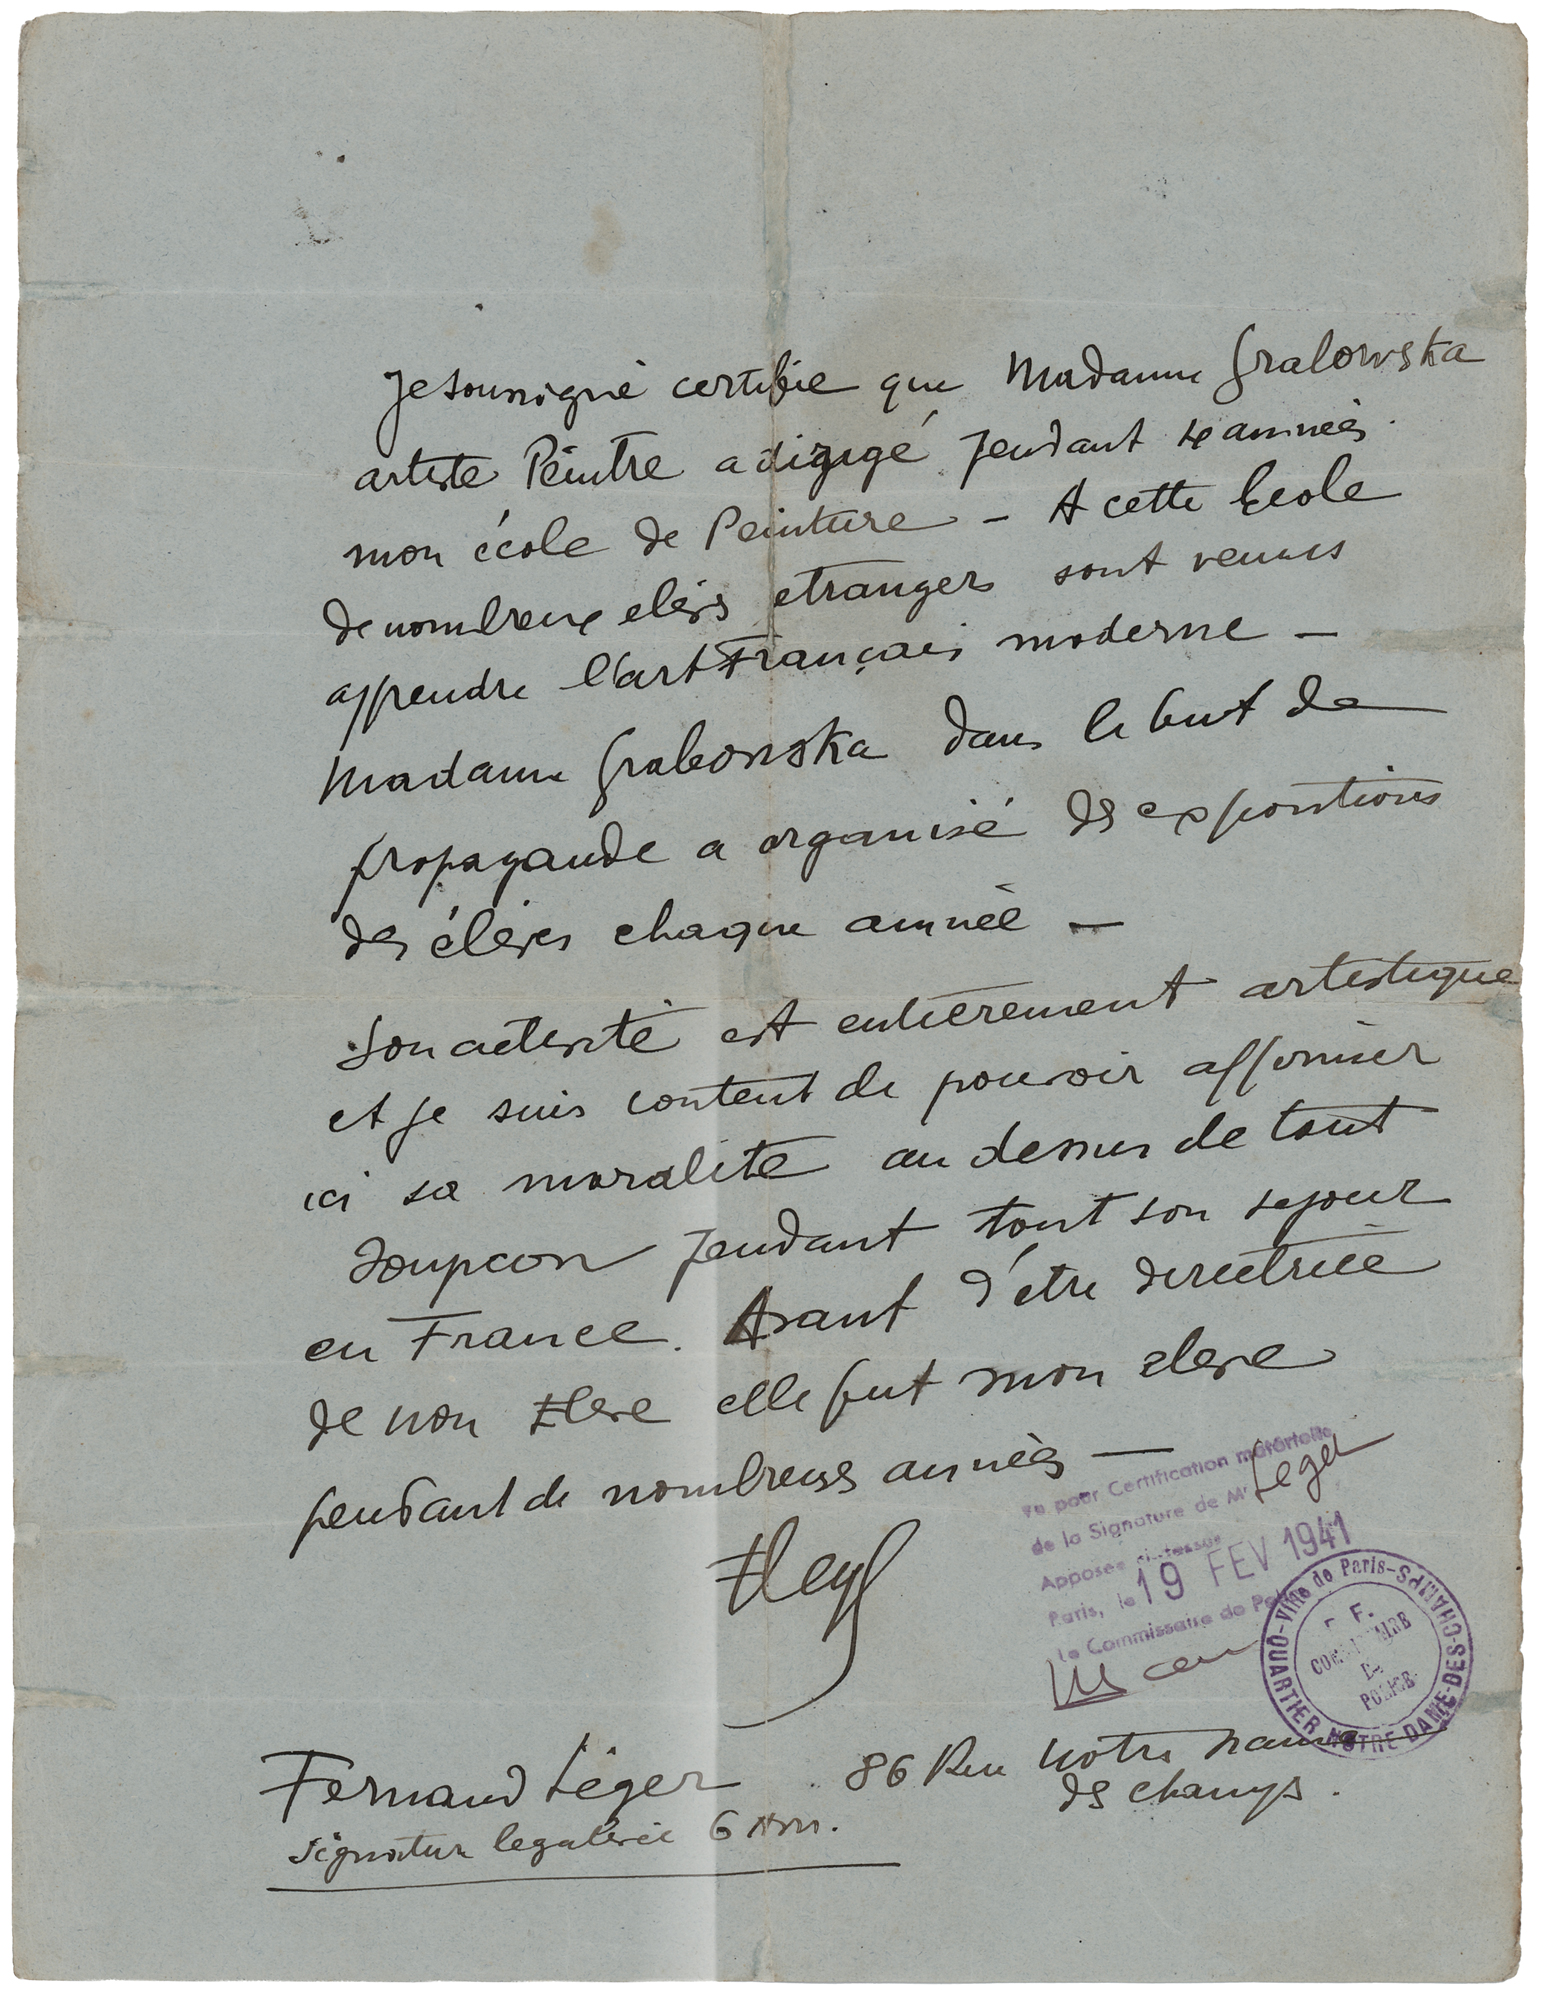 Je soussigné certifie que Madame Grabowska
artiste Peintre a dirigé pendant 4 années
mon école de Peinture – A cette Ecole
de nombreux elèves etrangers sont venus
apprendre l'art Français moderne –
Madame Grabowska dans le but de
propagande a organisé des expositions
des élèves chaque année –
Son activité est entièrement artistique
et je suis content de pouvoir affirmer
ici sa moralité au dessus de tout
soupcon pendant tout son sejour
en France. Avant d'être directrice
de mon elève elle fut mon elève
pendant de nombreuses années –
FLeger
Vu pour Certification matérielle
de la Signature de Mr Leger
Apposée ci-dessus
Paris, le 19 FEV 1941
Le Commissaire de Police
QUARTIER NOTRE DAME-DES-CHAMPS - Ville de Paris
R. F.
COMMISSAIRE
DE
POLICE
Fernand Léger 86 Rue Notre Dame
des champs.
signature legalisée 6